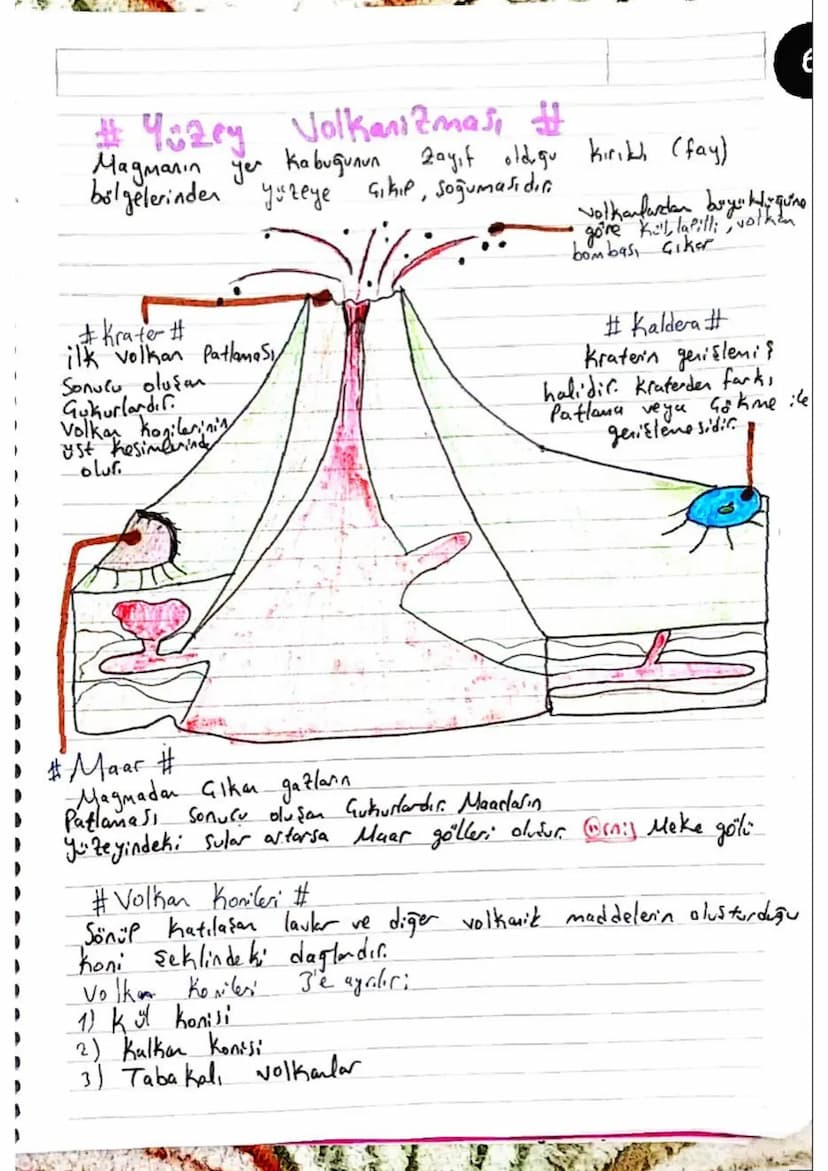 6
# Yüzey Volkanizması #
Magmanın yer kabuğunun zayıf olduğu kırıklı (fay)
bölgelerinden yüzeye çıkıp, soğumasıdır.
Volkanlardan büyüklüğüne
göre kül, lapilli, volkan
bombası çıkar
# Krater #
ilk volkan patlaması
Sonucu oluşan
Çukurlardır.
Volkan konilerinin
üst kesimlerinde
olur.
# Kaldera #
Kraterin genişlemiş
halidir. Kraterden farkı
Patlama veya Çökme ile
genişlemesidir.
# Maar #
Magmadan Çıkan gazların
Patlaması sonucu oluşan Çukurlardır. Maarların
yüzeyindeki sular artarsa Maar gölleri oluşur. Örniş Meke gölü
# Volkan Konileri #
Sönüp katılaşan lavlar ve diğer volkanik maddelerin oluşturduğu
koni şeklindeki dağlardır.
Volkan Konileri 3'e ayrılır;
1) Kül konisi
2) Kalkan konisi
3) Tabakalı volkanlar